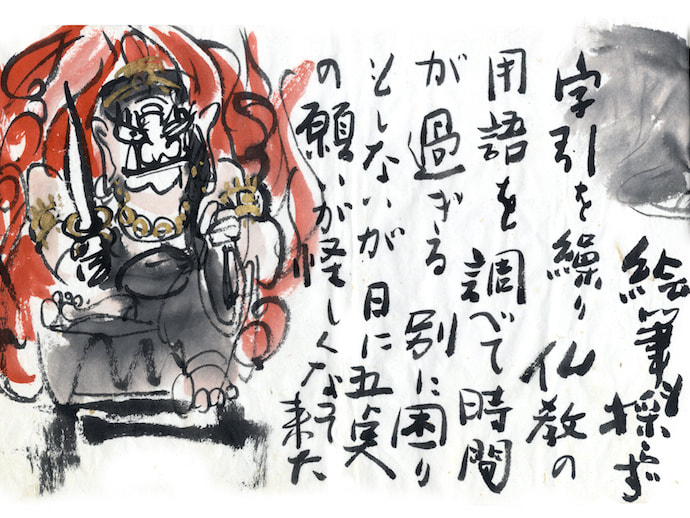 絵筆採らず
字引を繰り仏教の
用語を調べて時間
が過ぎる 別に困り
もしないが日に五点
の願いが怪しくなって来た